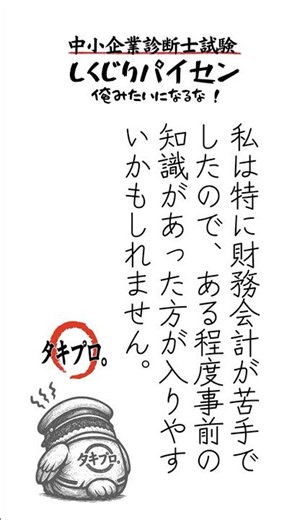 中小企業診断士試験
しくじりパイセン
俺みたいになるな！
私は特に財務会計が苦手で
したので、ある程度事前の
知識があった方が入りやす
いかもしれません。
タキプロ。
タキプロ。